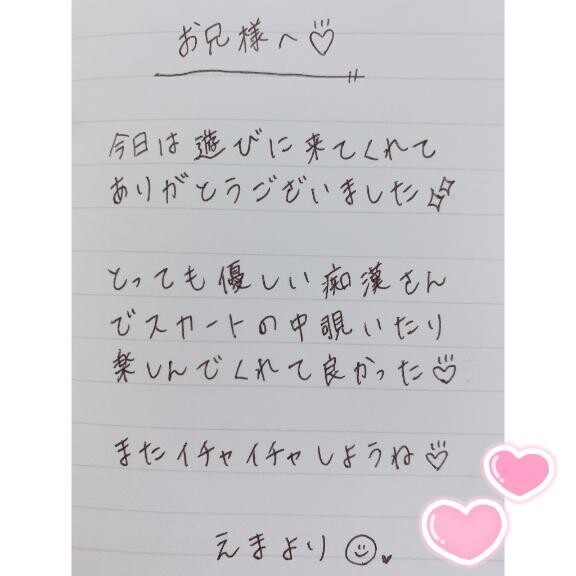 お兄様へ♡
今日は遊びに来てくれて
ありがとうございました
とっても優しい痴漢さん
でスカートの中覗いたり
楽しんでくれて良かった♡
またイチャイチャしようね♡
えまより☺♥